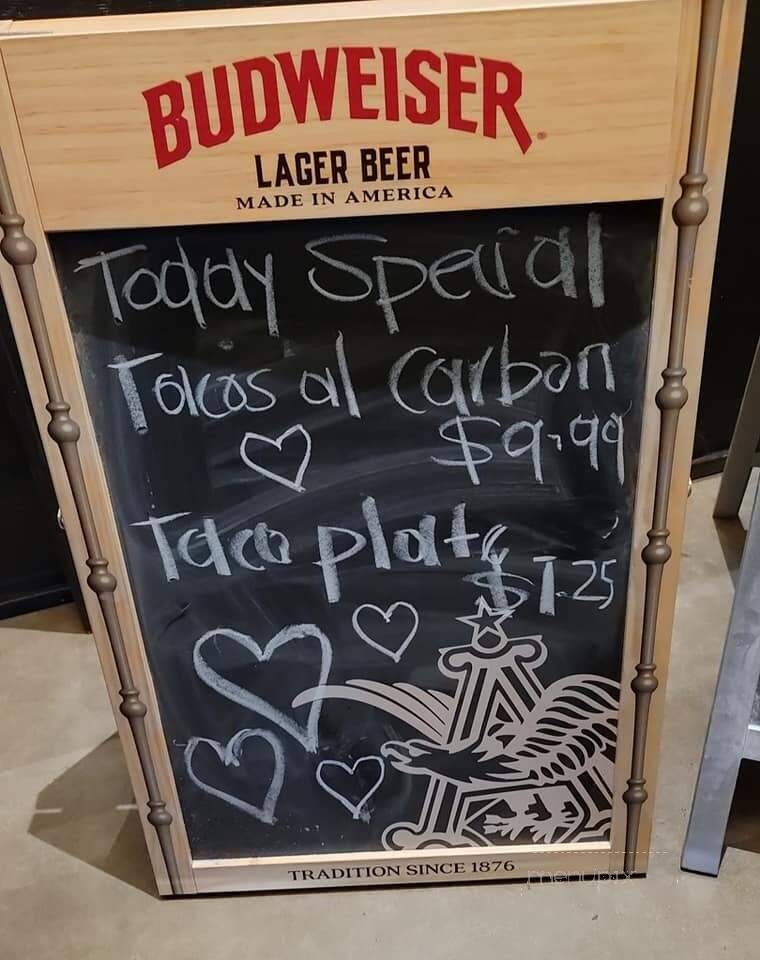 BUDWEISER
LAGER BEER
MADE IN AMERICA
Today Special
Tacos al Carbon
$9.99
Taco plate
$7.25
TRADITION SINCE 1876
menupix